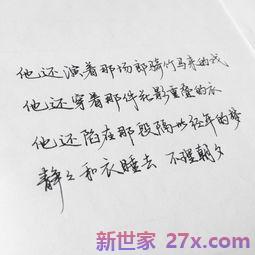 他还演着那场郎骑竹马来的戏
他还穿着那件花影重叠的衣
他还陷在那段隔世经年的梦
静立和衣睡去 不理朝夕
新世家 27x.com